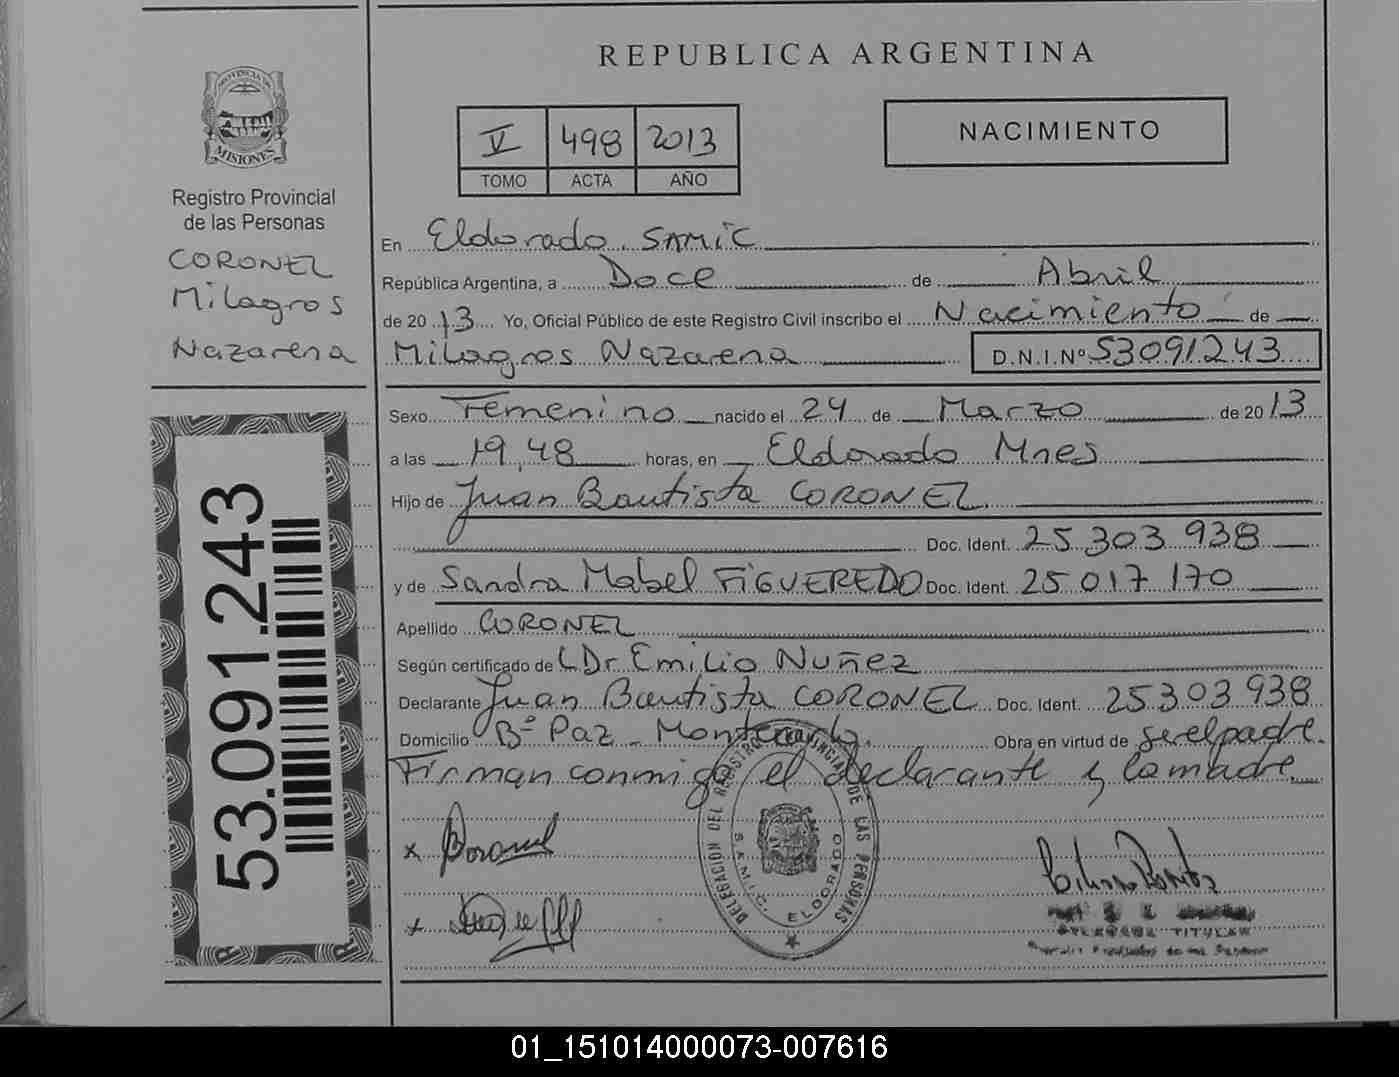 REPUBLICA ARGENTINA
PROVINCIA DE
MISIONES
Registro Provincial
de las Personas
CORONEL
Milagros
Nazarena
V 498 2013
TOMO ACTA AÑO
NACIMIENTO
En Eldorado. SAMiC
República Argentina, a Doce de Abril
de 2013 Yo, Oficial Público de este Registro Civil inscribo el Nacimiento de
Milagros Nazarena D.N.I.Nº 53091243
Sexo Femenino nacido el 24 de Marzo de 2013
a las 19,48 horas, en Eldorado Mnes
Hijo de Juan Bautista CORONEL
Doc. Ident. 25 303 938
y de Sandra Mabel FiGUEREDO Doc. Ident. 25 017 170
Apellido CORONEL
Según certificado de Dr Emilio Nuñez
Declarante Juan Bautista CORONEL Doc. Ident. 25303938
Domicilio Bº Paz - Montecarlo. Obra en virtud de ser el padre.
Firman conmigo el declarante y la madre
53.091.243
DELEGACION DEL REGISTRO PROVINCIAL DE LAS PERSONAS
S.A.M.I.C. ELDORADO
TITULAR
01_151014000073-007616